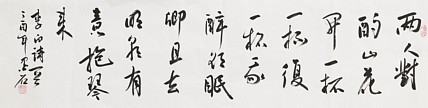 两人對
酌山花
开一杯
一杯復
一杯我
醉欲眠
卿且去
明朝有
意抱琴
来
李白诗一首
丁酉年